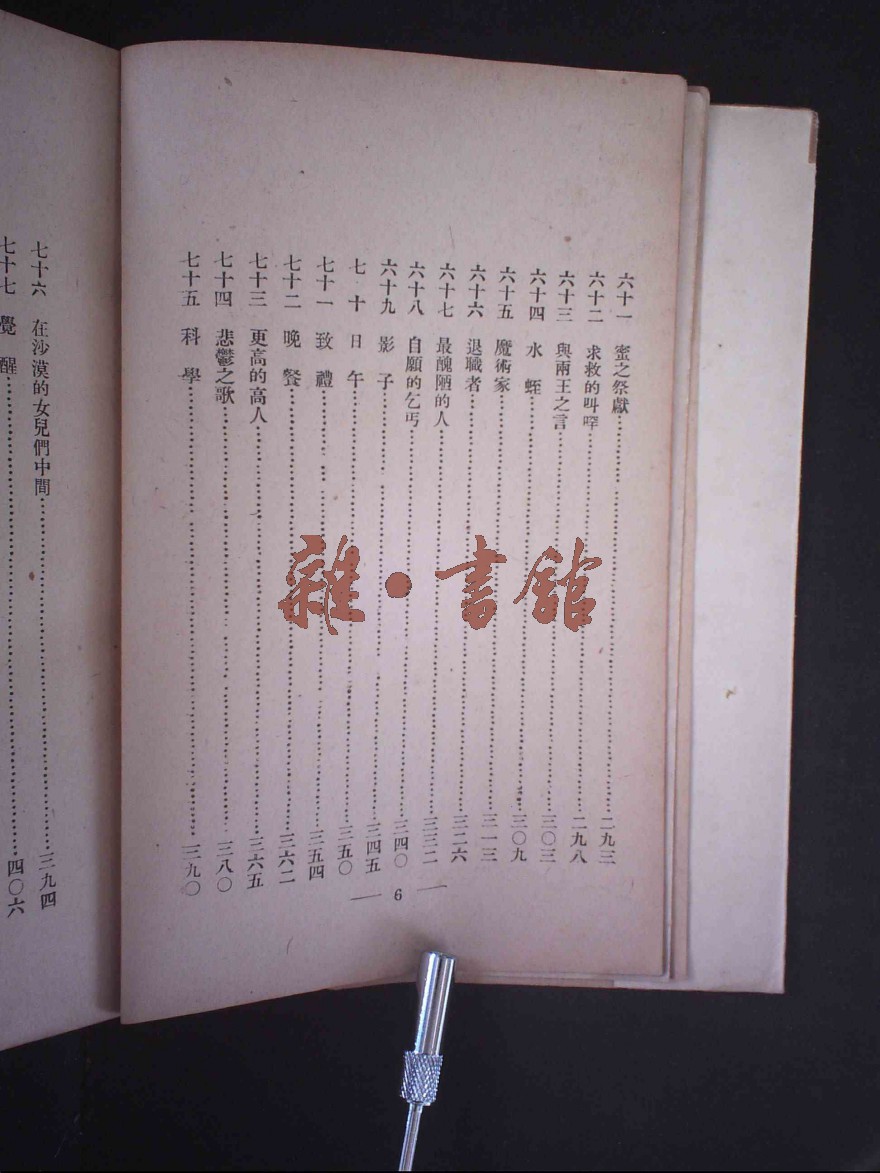 六十一 蜜之祭獻 二九三
六十二 求救的叫㘁 二九八
六十三 與兩王之言 三〇三
六十四 水蛭 三〇九
六十五 魔術家 三一三
六十六 退職者 三二六
六十七 最醜陋的人 三三二
六十八 自願的乞丐 三四〇
六十九 影子 三四五
七十 日午 三五〇
七十一 致禮 三五四
七十二 晚餐 三六二
七十三 更高的高人 三六五
七十四 悲鬱之歌 三八〇
七十五 科學 三九〇
— 6 —
七十六 在沙漠的女兒們中間 三九四
七十七 覺醒 四〇六
雜·書館